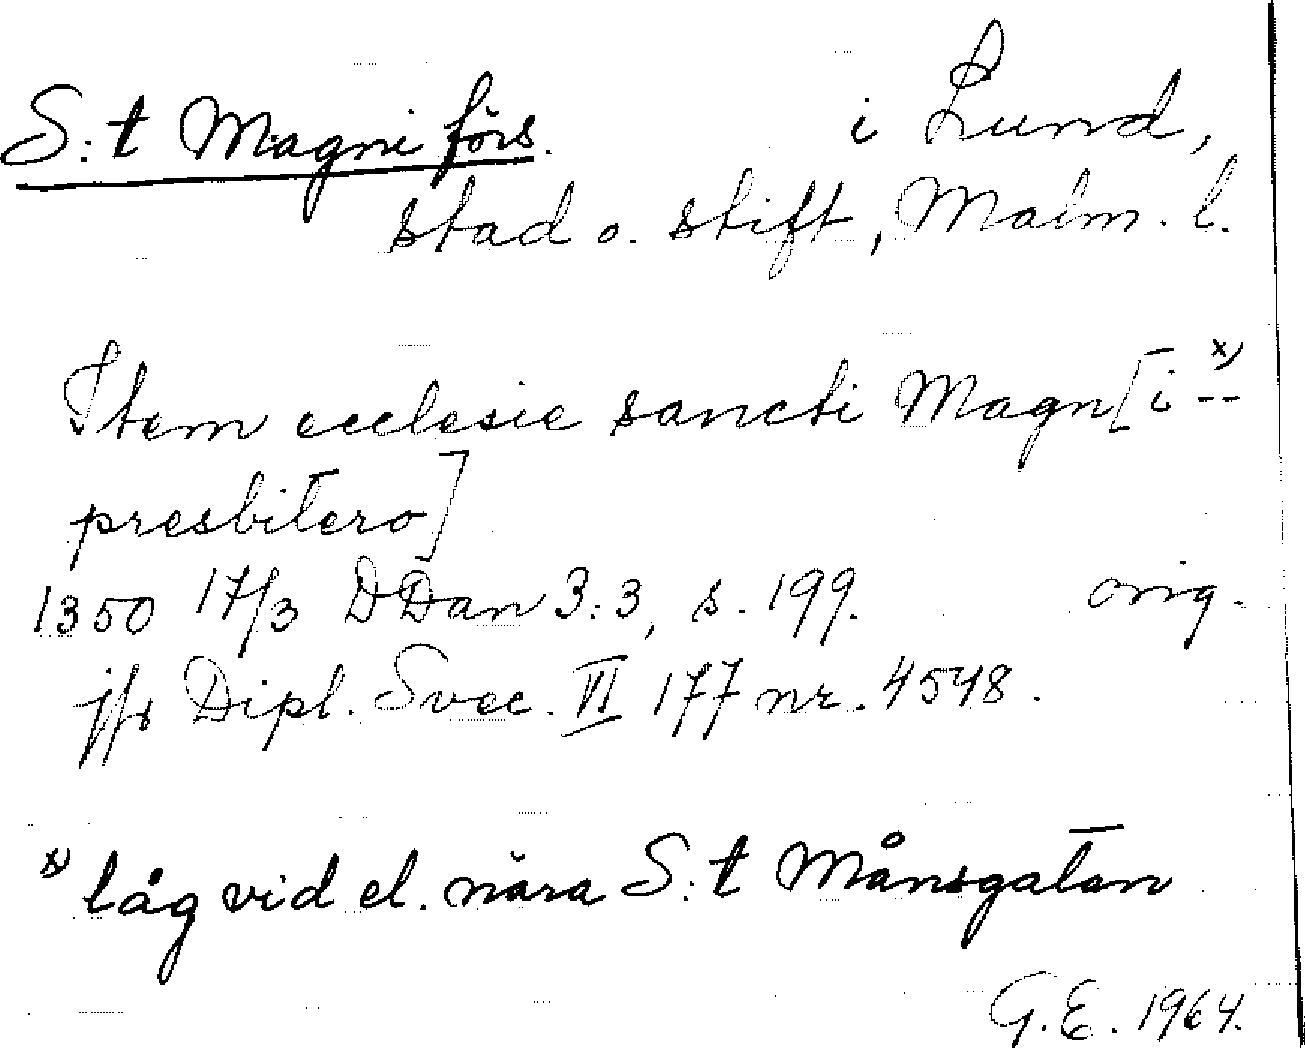 S:t Magni förs. i Lund,
stad o. stift, Malm. l.
Item ecclesie sancti Magn[i x) --
presbitero]
1350 17/3 DDan 3:3, s. 199. orig.
jfr Dipl. Svec. VI 177 nr. 4548.
x) låg vid el. nära S:t Månsgatan
G.E. 1964.